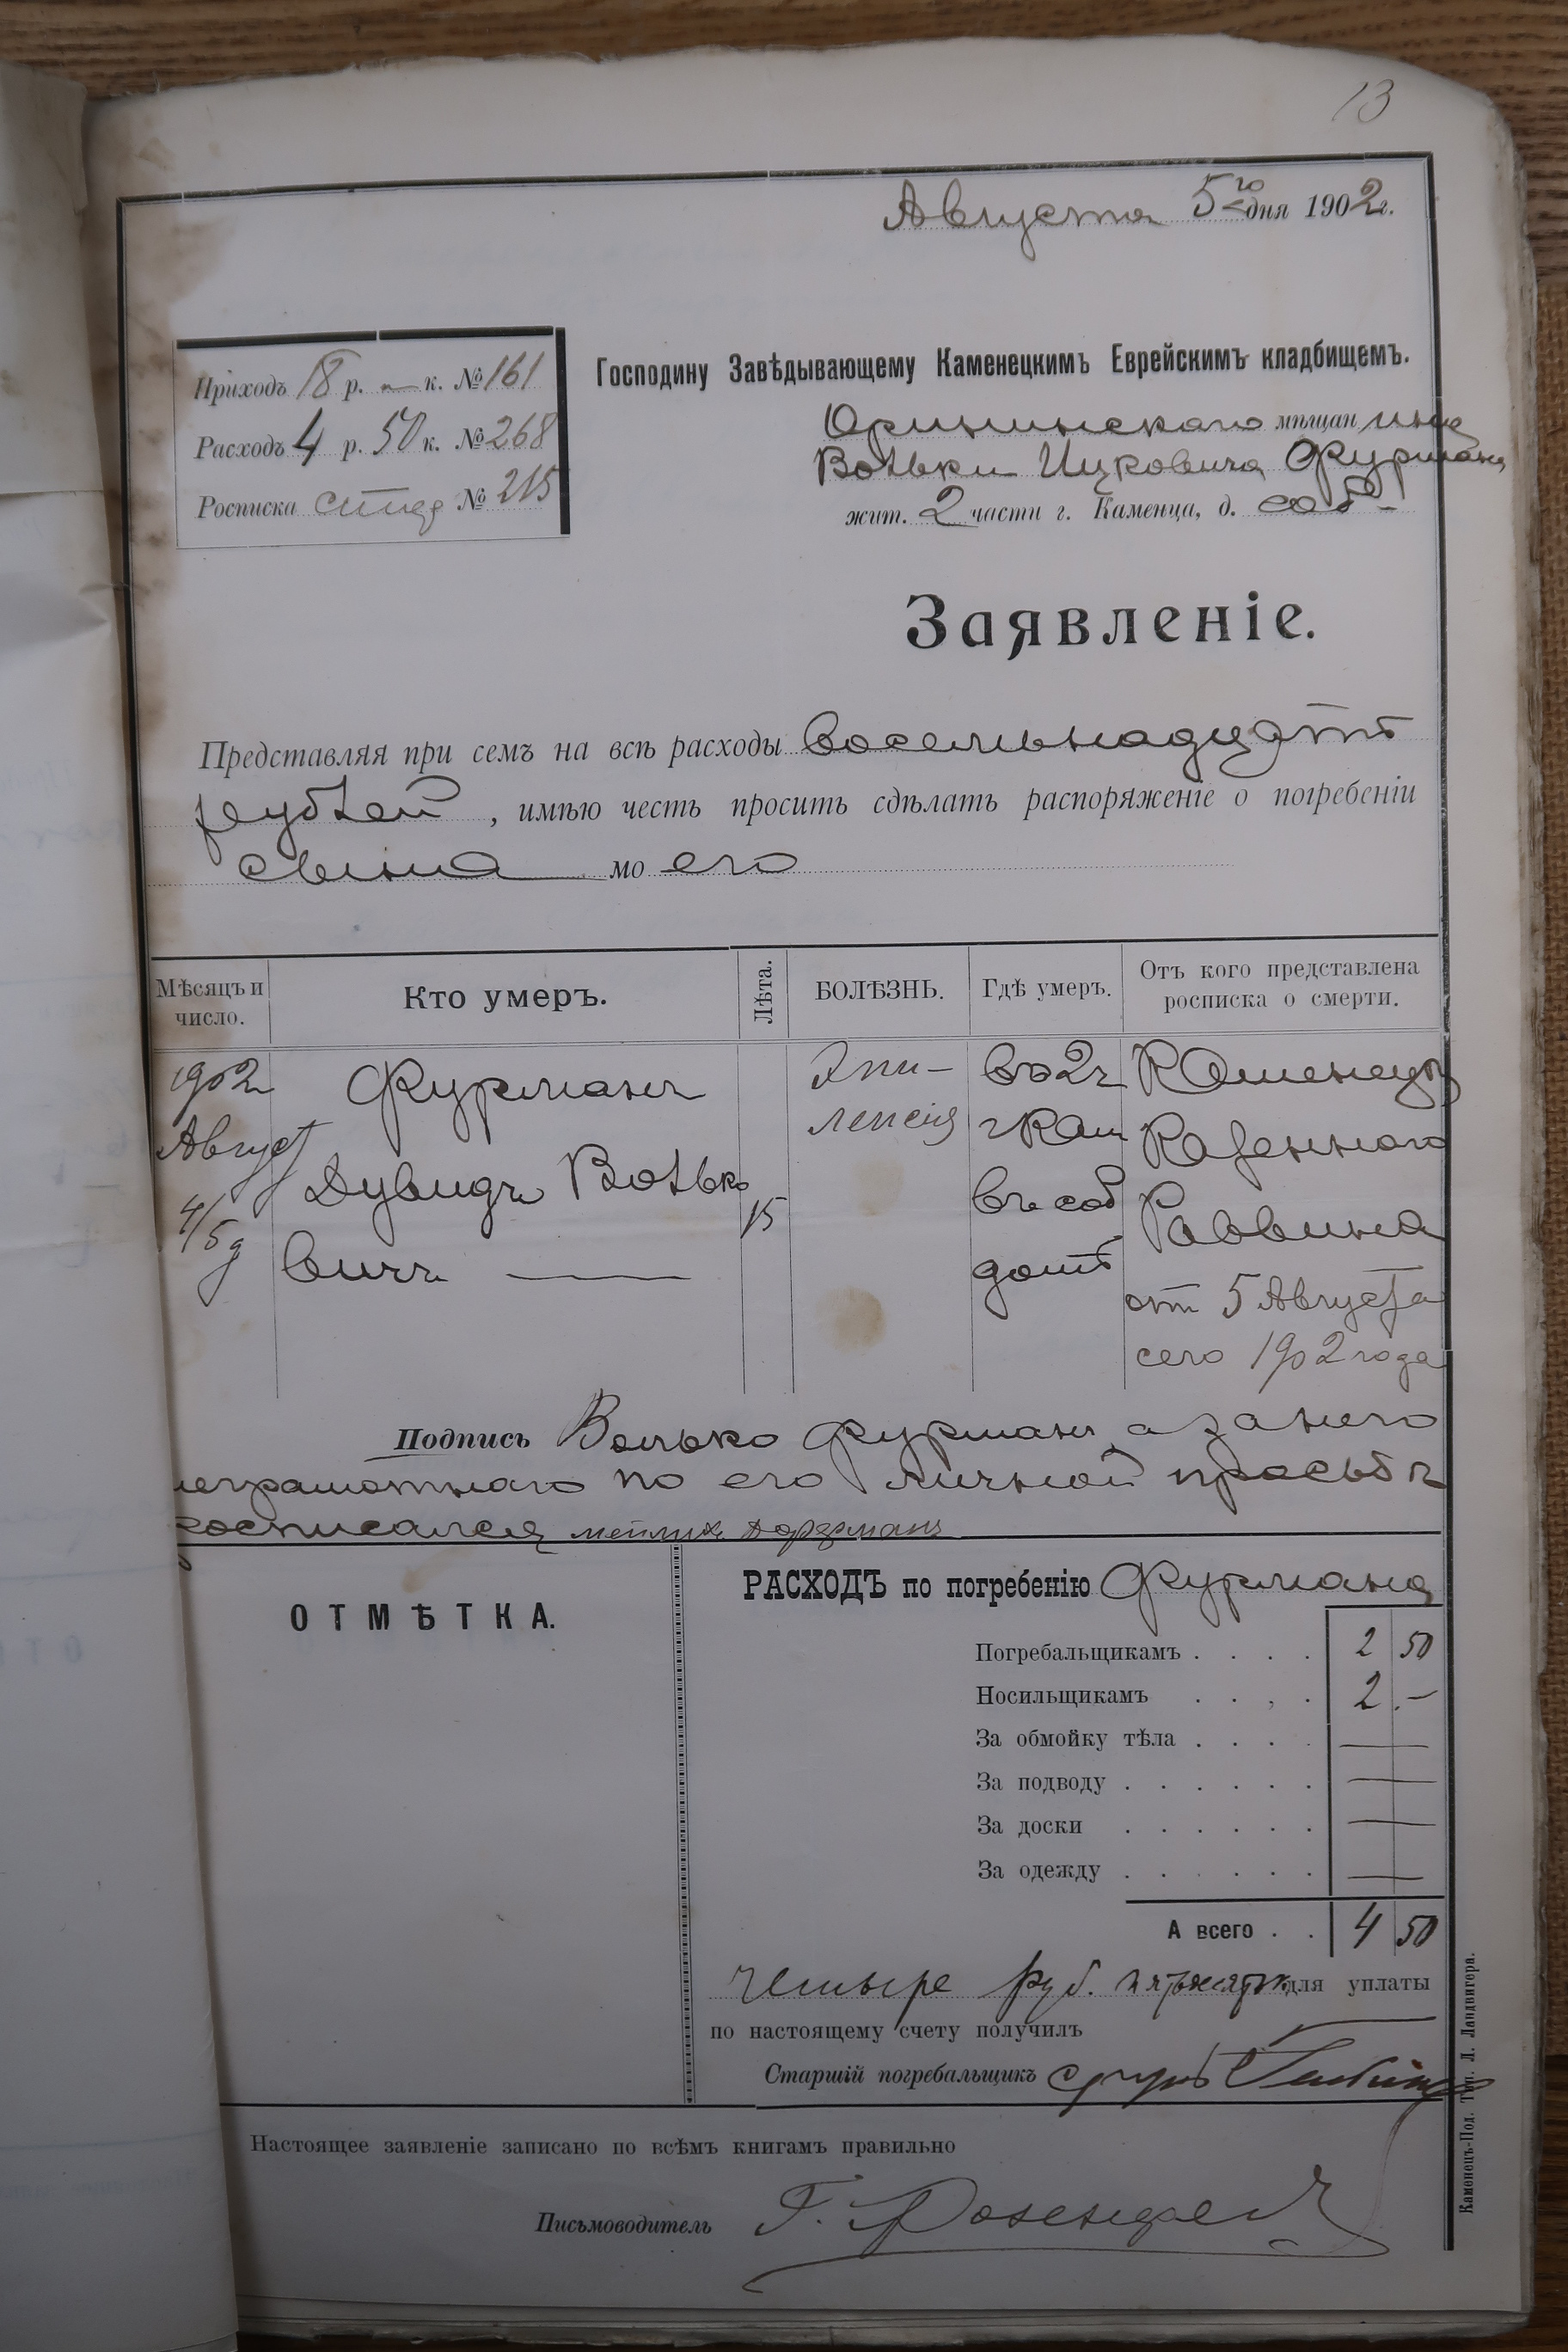 13
Августа 5го дня 1902 г.
Приходъ 18 р. — к. № 161
Расходъ 4 р. 50 к. № 268
Росписка № 215
Господину Завѣдывающему Каменецкимъ Еврейскимъ кладбищемъ.
Орининскаго мѣщанина
Волька Ицковича Фурмана
жит. 2 части г. Каменца, д. соб-
Заявленіе.
Представляя при семъ на всѣ расходы восемьнадцать
рублей, имѣю честь просить сдѣлать распоряженіе о погребеніи
сына моего
Мѣсяцъ и число. Кто умеръ. Лѣта. БОЛѢЗНЬ. Гдѣ умеръ. Отъ кого представлена росписка о смерти.
1902 Фурманъ Эпи- въ 2ч Каменецъ
Август Дувидъ Волько 15 лепсія г Кам Казеннаго
4/5 д вичъ — въ соб Раввина
домѣ от 5 Августа
сего 1902 года
Подпись Волько Фурманъ а за него
неграмотнаго по его личной просьбѣ
росписался
ОТМѢТКА.
РАСХОДЪ по погребенію Фурмана
Погребальщикамъ . . . . 2 50
Носильщикамъ . . , . 2 . —
За обмойку тѣла . . . . —
За подводу . . . . . . —
За доски . . . . . . —
За одежду . . . . . . —
А всего . . 4 50
четыре руб. пятьдесятъ к для уплаты
по настоящему счету получилъ
Старшій погребальщикъ
Настоящее заявленіе записано по всѣмъ книгамъ правильно
Письмоводитель Г. Розенфел
Каменецъ-Под. Тип. Л. Ландвигера.